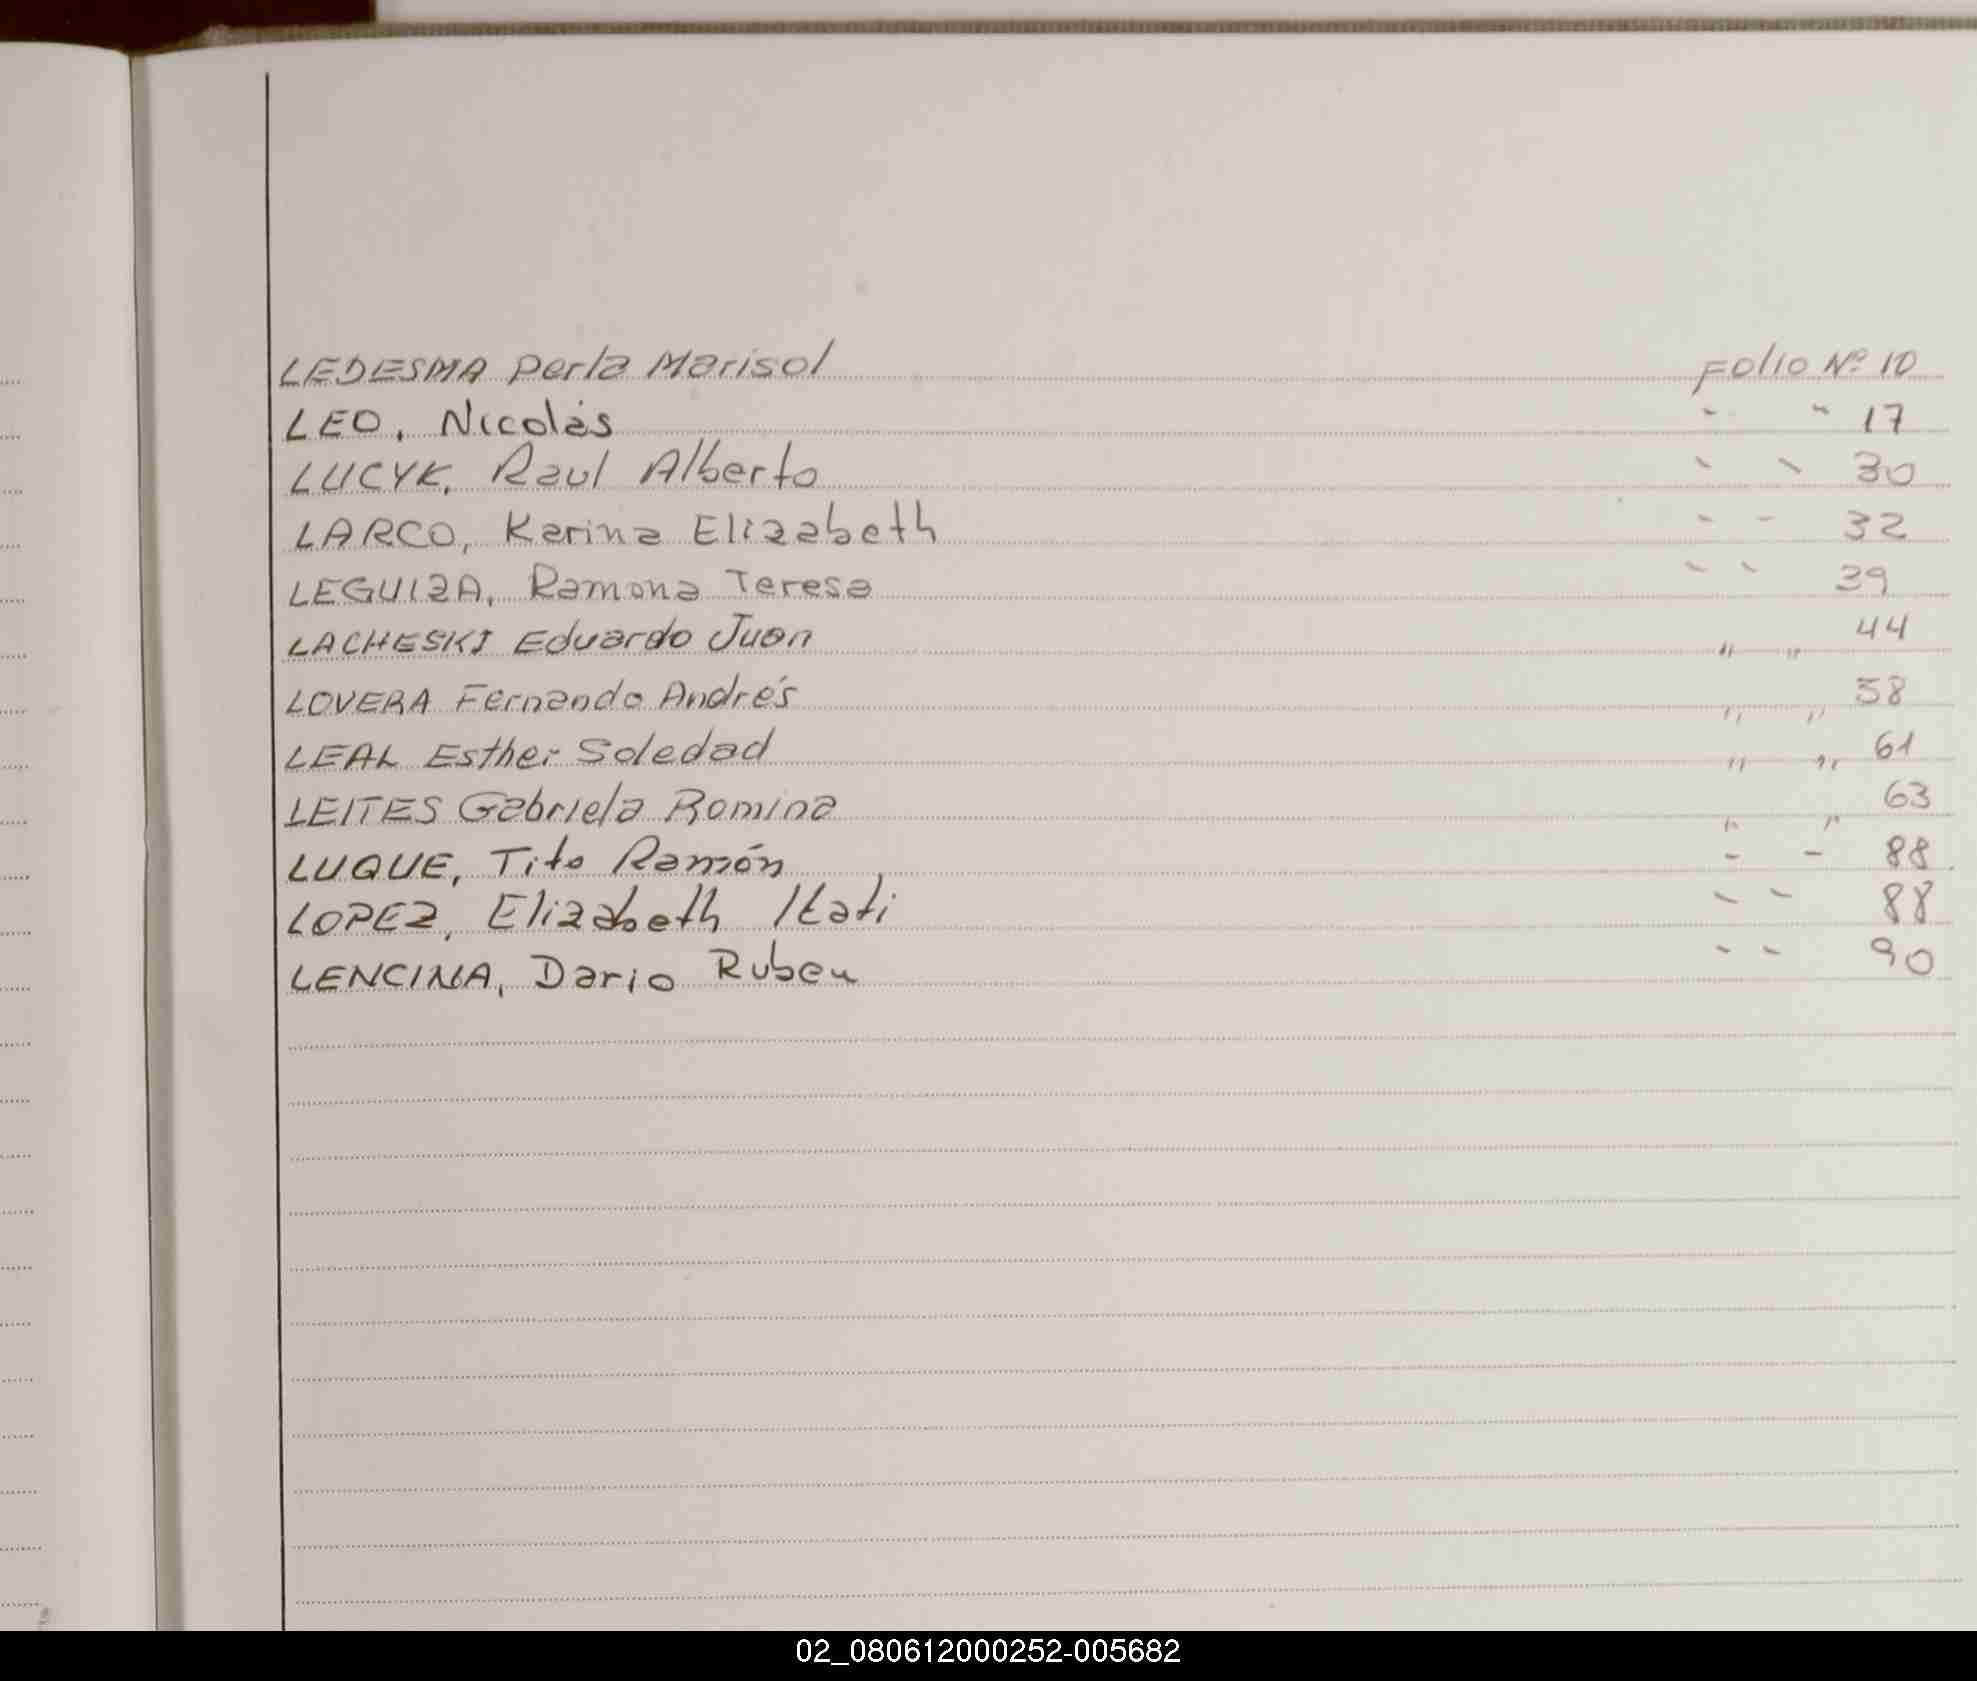 LEDESMA Perla Marisol Folio Nº 10
LEO, Nicolás " " 17
LUCYK, Raul Alberto " " 30
LARCO, Karina Elizabeth " " 32
LEGUIZA, Ramona Teresa " " 39
LACHESKI Eduardo Juan " " 44
LOVERA Fernando Andrés " " 58
LEAL Esther Soledad " " 61
LEITES Gabriela Romina " " 63
LUQUE, Tito Ramón " " 88
LOPEZ, Elizabeth Itati " " 88
LENCINA, Dario Ruben " " 90
02_080612000252-005682